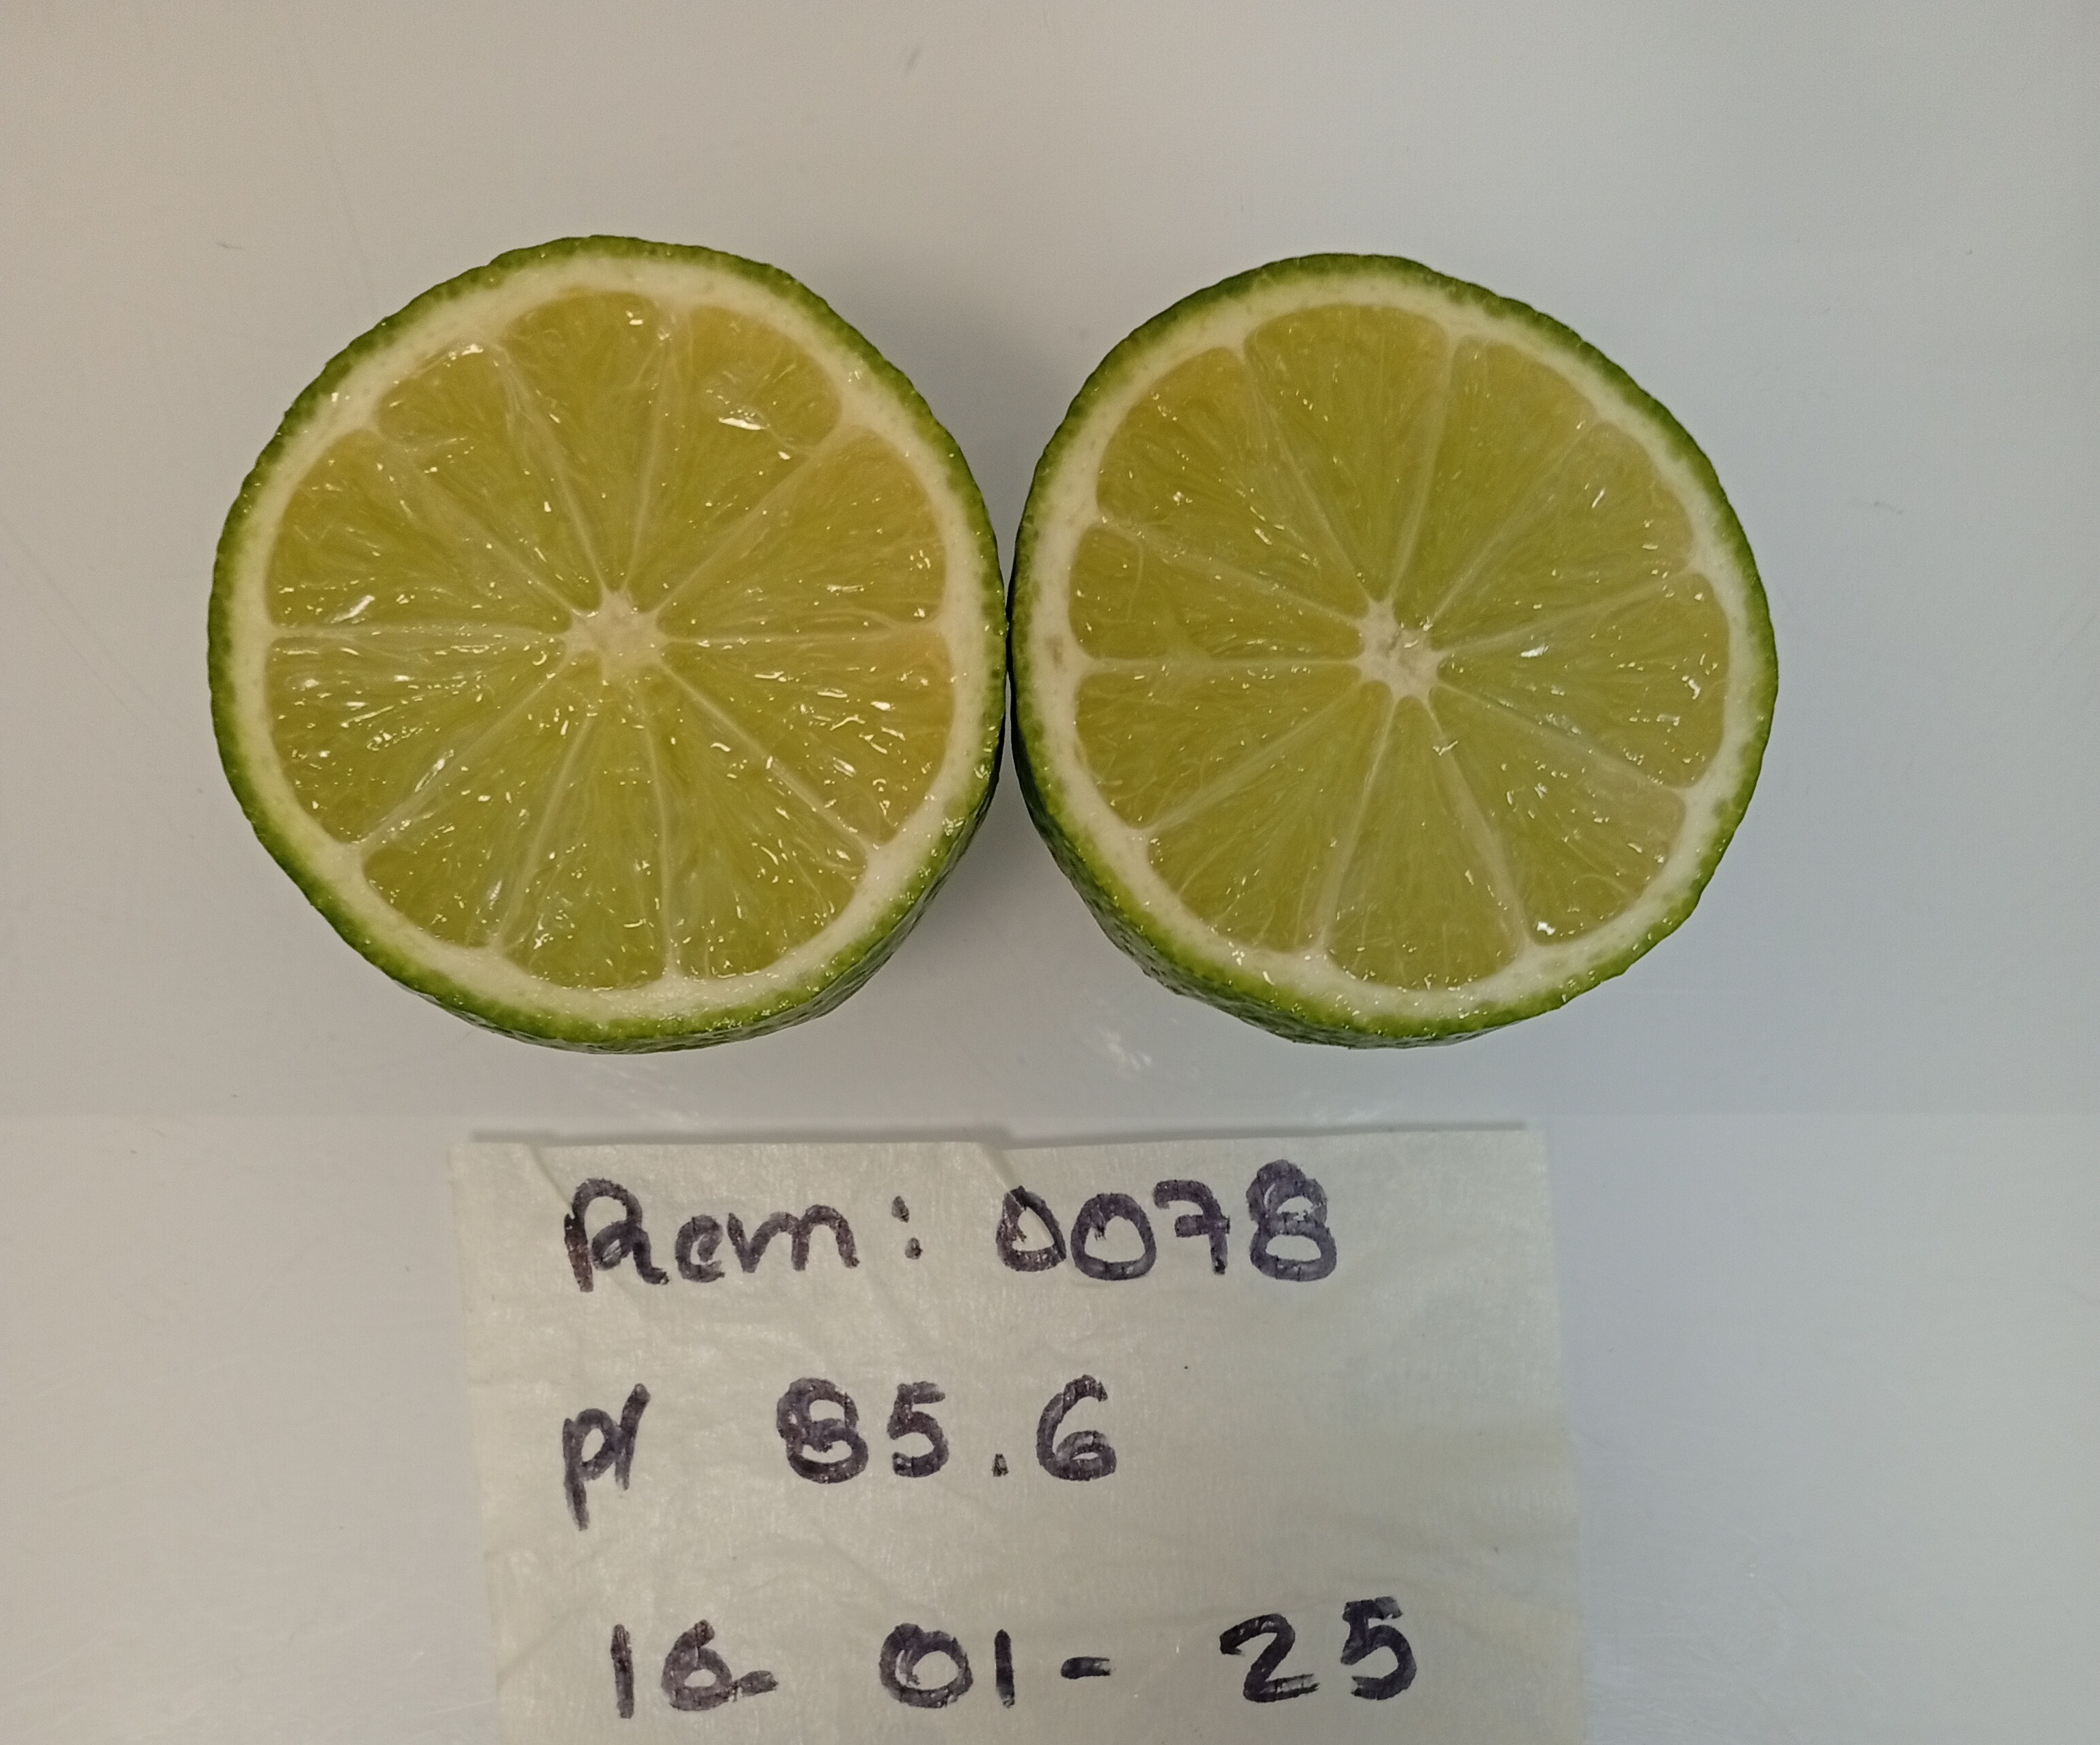 Rem: 0078
p/ 85.6
16-01-25